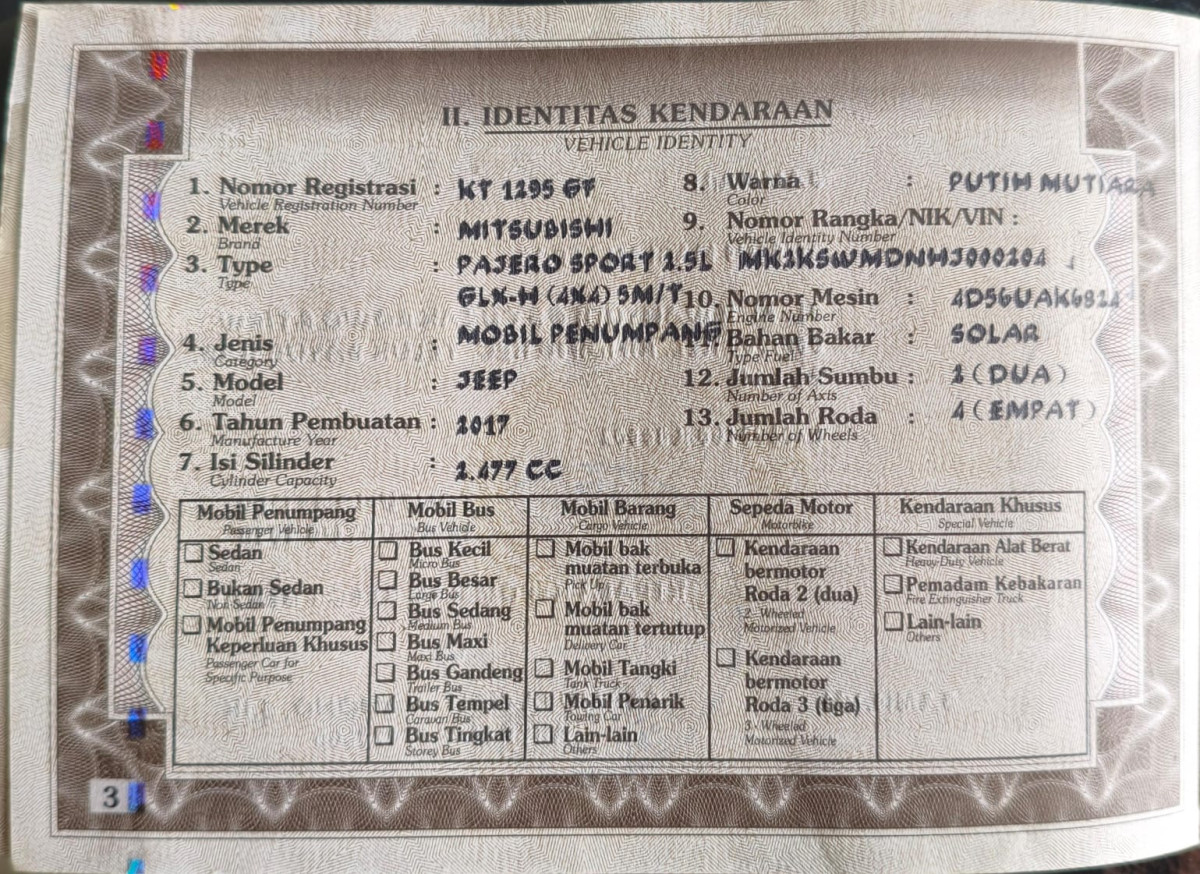 II. IDENTITAS KENDARAAN
VEHICLE IDENTITY
1. Nomor Registrasi : KT 1295 GF
Vehicle Registration Number
2. Merek : MITSUBISHI
Brand
3. Type : PAJERO SPORT 2.5L
Type
GLX-H (4X4) 5M/T
4. Jenis : MOBIL PENUMPANG
Category
5. Model : JEEP
Model
6. Tahun Pembuatan : 2017
Manufacture Year
7. Isi Silinder : 2.477 CC
Cylinder Capacity
8. Warna : PUTIH MUTIARA
Color
9. Nomor Rangka/NIK/VIN :
Vehicle Identity Number
MK2KSWMDNHJ000204
10. Nomor Mesin : 4D56UAK6814
Engine Number
Bahan Bakar : SOLAR
Type Fuel
12. Jumlah Sumbu : 2 (DUA)
Number of Axis
13. Jumlah Roda : 4 (EMPAT)
Number of Wheels
Mobil Penumpang
Passenger Vehicle
Sedan
Sedan
Bukan Sedan
Non Sedan
Mobil Penumpang
Keperluan Khusus
Passenger Car for
Specific Purpose
Mobil Bus
Bus Vehicle
Bus Kecil
Micro Bus
Bus Besar
Large Bus
Bus Sedang
Medium Bus
Bus Maxi
Maxi Bus
Bus Gandeng
Trailer Bus
Bus Tempel
Caravan Bus
Bus Tingkat
Storey Bus
Mobil Barang
Cargo Vehicle
Mobil bak
muatan terbuka
Pick Up
Mobil bak
muatan tertutup
Delivery Car
Mobil Tangki
Tank Truck
Mobil Penarik
Towing Car
Lain-lain
Others
Sepeda Motor
Motorbike
Kendaraan
bermotor
Roda 2 (dua)
2 - Wheeled
Motorized Vehicle
Kendaraan
bermotor
Roda 3 (tiga)
3 - Wheeled
Motorized Vehicle
Kendaraan Khusus
Special Vehicle
Kendaraan Alat Berat
Heavy-Duty Vehicle
Pemadam Kebakaran
Fire Extinguisher Truck
Lain-lain
Others
3